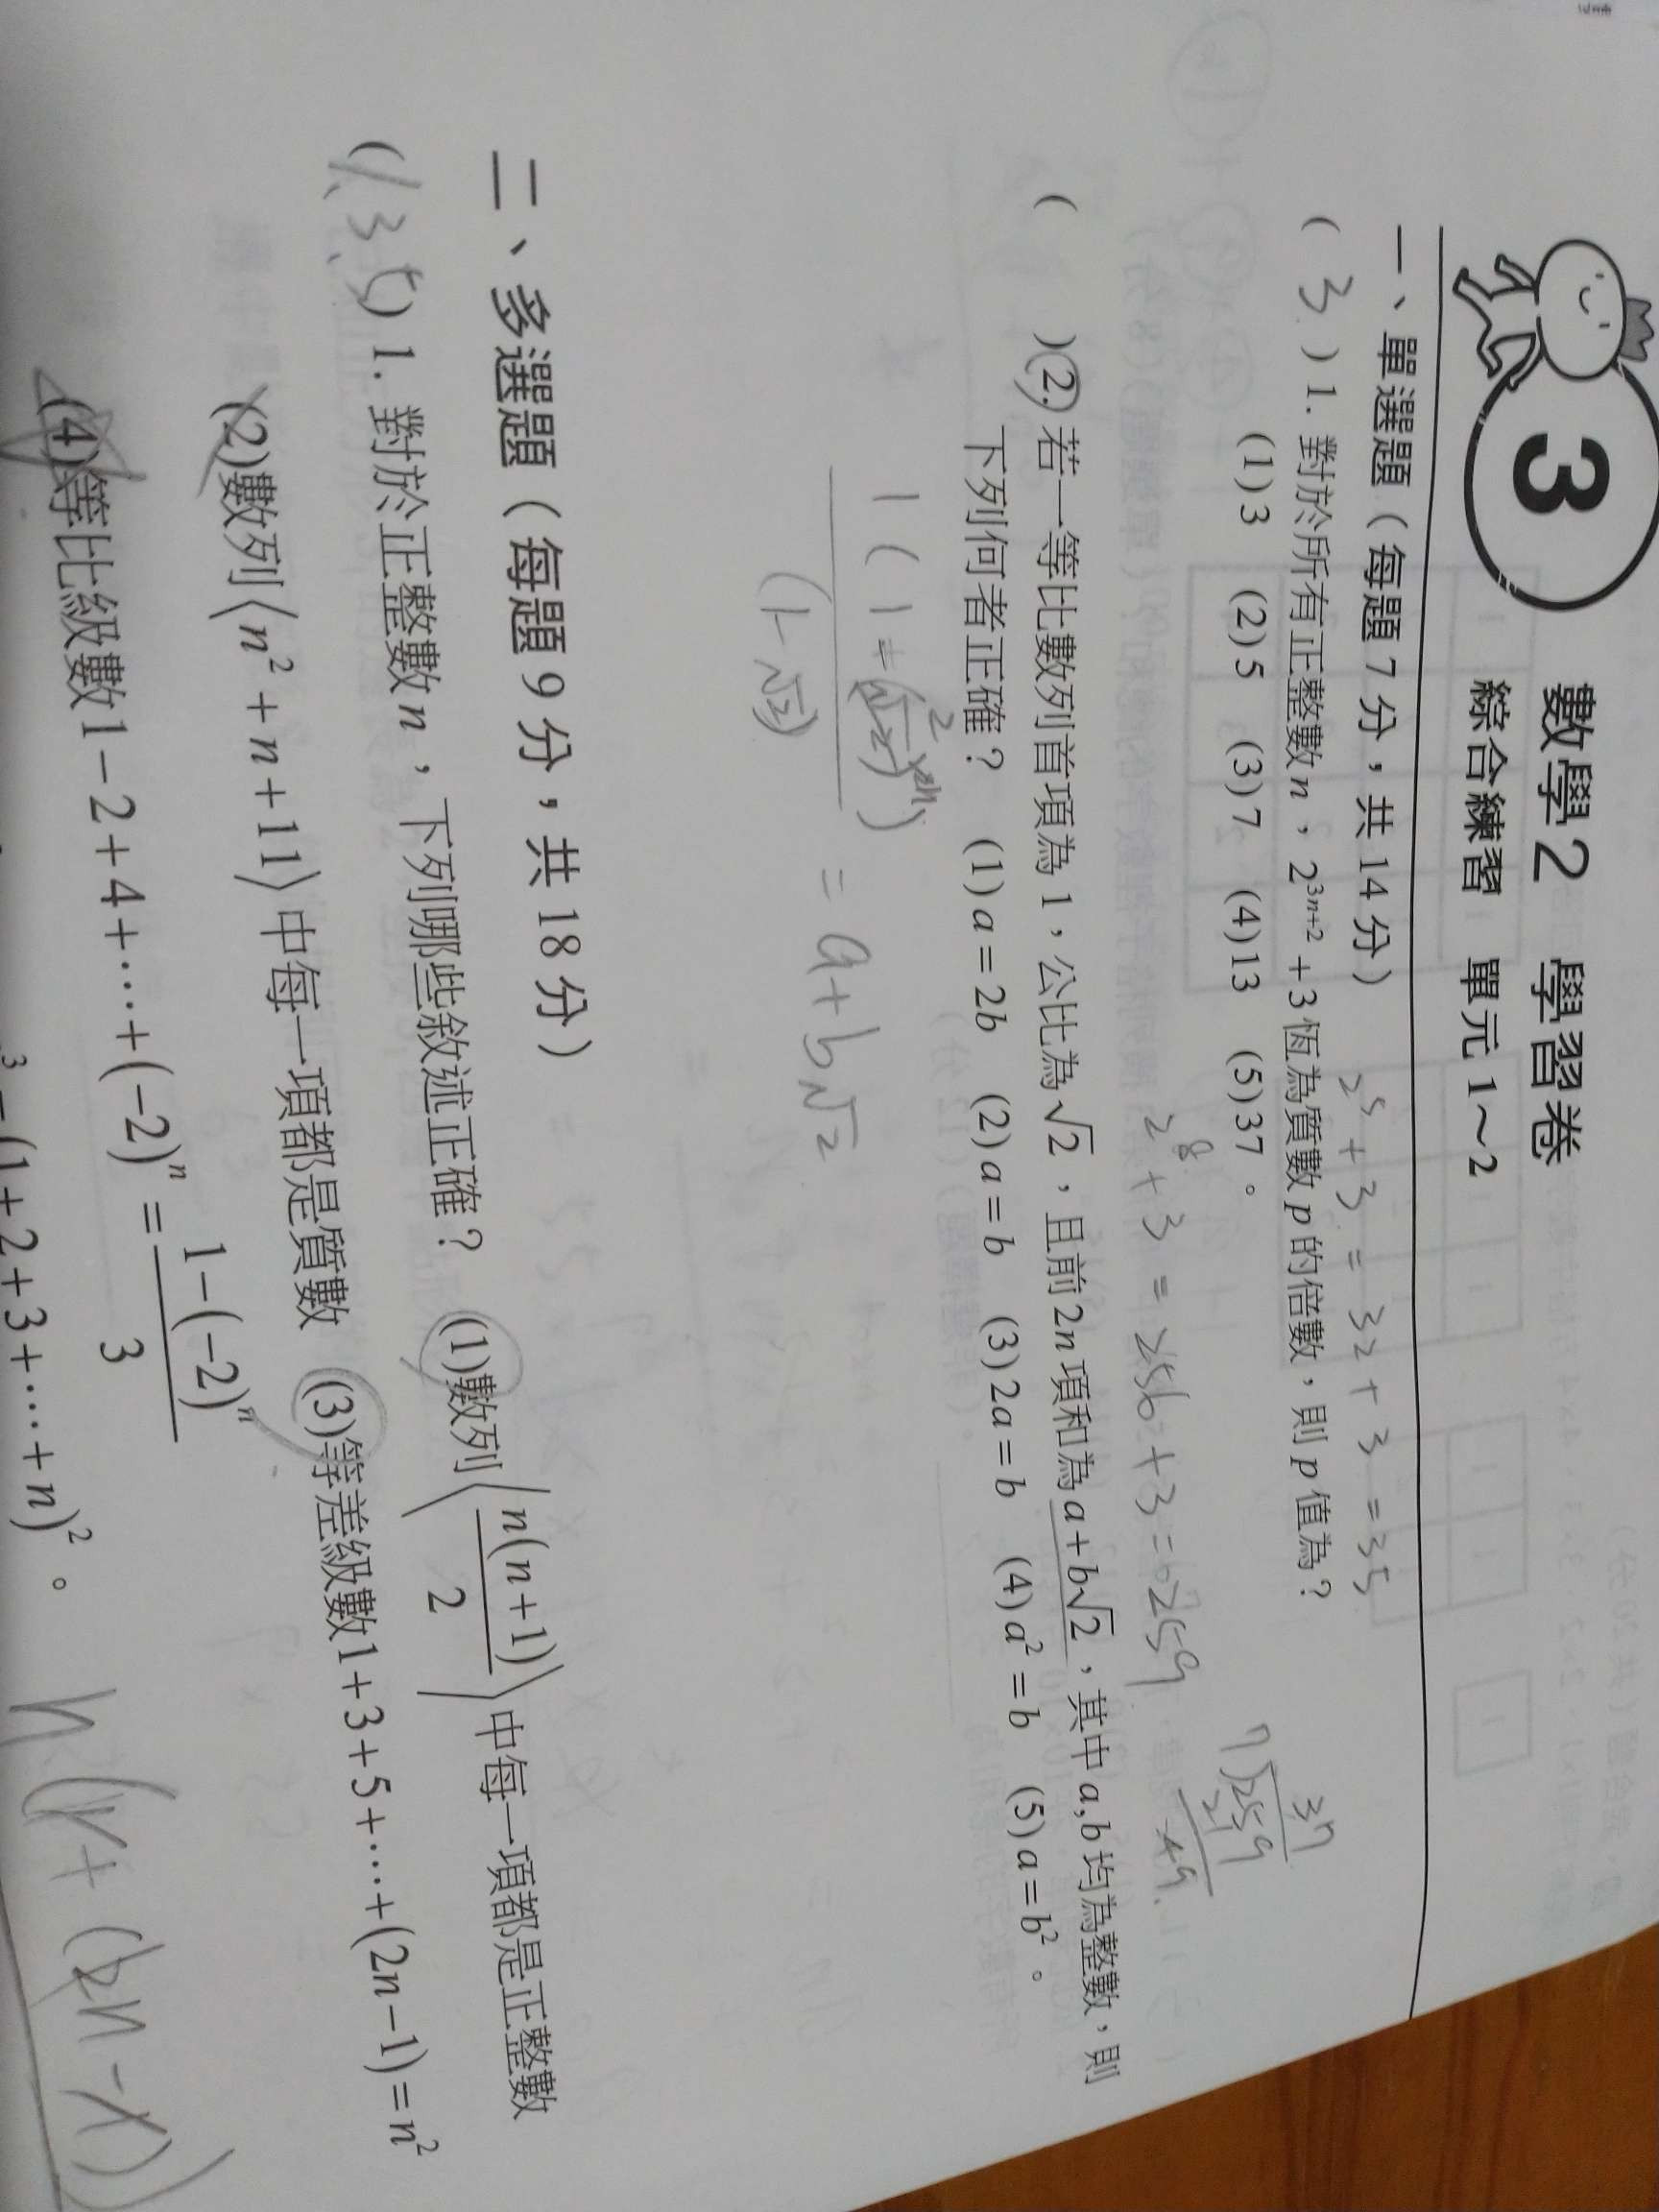 3
數學2 學習卷
綜合練習 單元1～2
一、單選題（每題7分，共14分）
2⁵+3=32+3=35
( 3 ) 1. 對於所有正整數n，2³ⁿ⁺²+3恆為質數p的倍數，則p值為？
(1)3 (2)5 (3)7 (4)13 (5)37。
37
7)259
21
49
2⁸+3=256+3=259
( ) 2. 若一等比數列首項為1，公比為√2，且前2n項和為a+b√2，其中a,b均為整數，則
下列何者正確？ (1)a=2b (2)a=b (3)2a=b (4)a²=b (5)a=b²。
=a+b√2
(1-√2)
二、多選題（每題9分，共18分）
(1、3、5) 1. 對於正整數n，下列哪些敘述正確？ (1)數列⟨n(n+1)/2⟩中每一項都是正整數
(2)數列⟨n²+n+11⟩中每一項都是質數 (3)等差級數1+3+5+⋯+(2n-1)=n²
(4)等比級數1-2+4+⋯+(-2)ⁿ=1-(-2)ⁿ/3
³=(1+2+3+⋯+n)²。